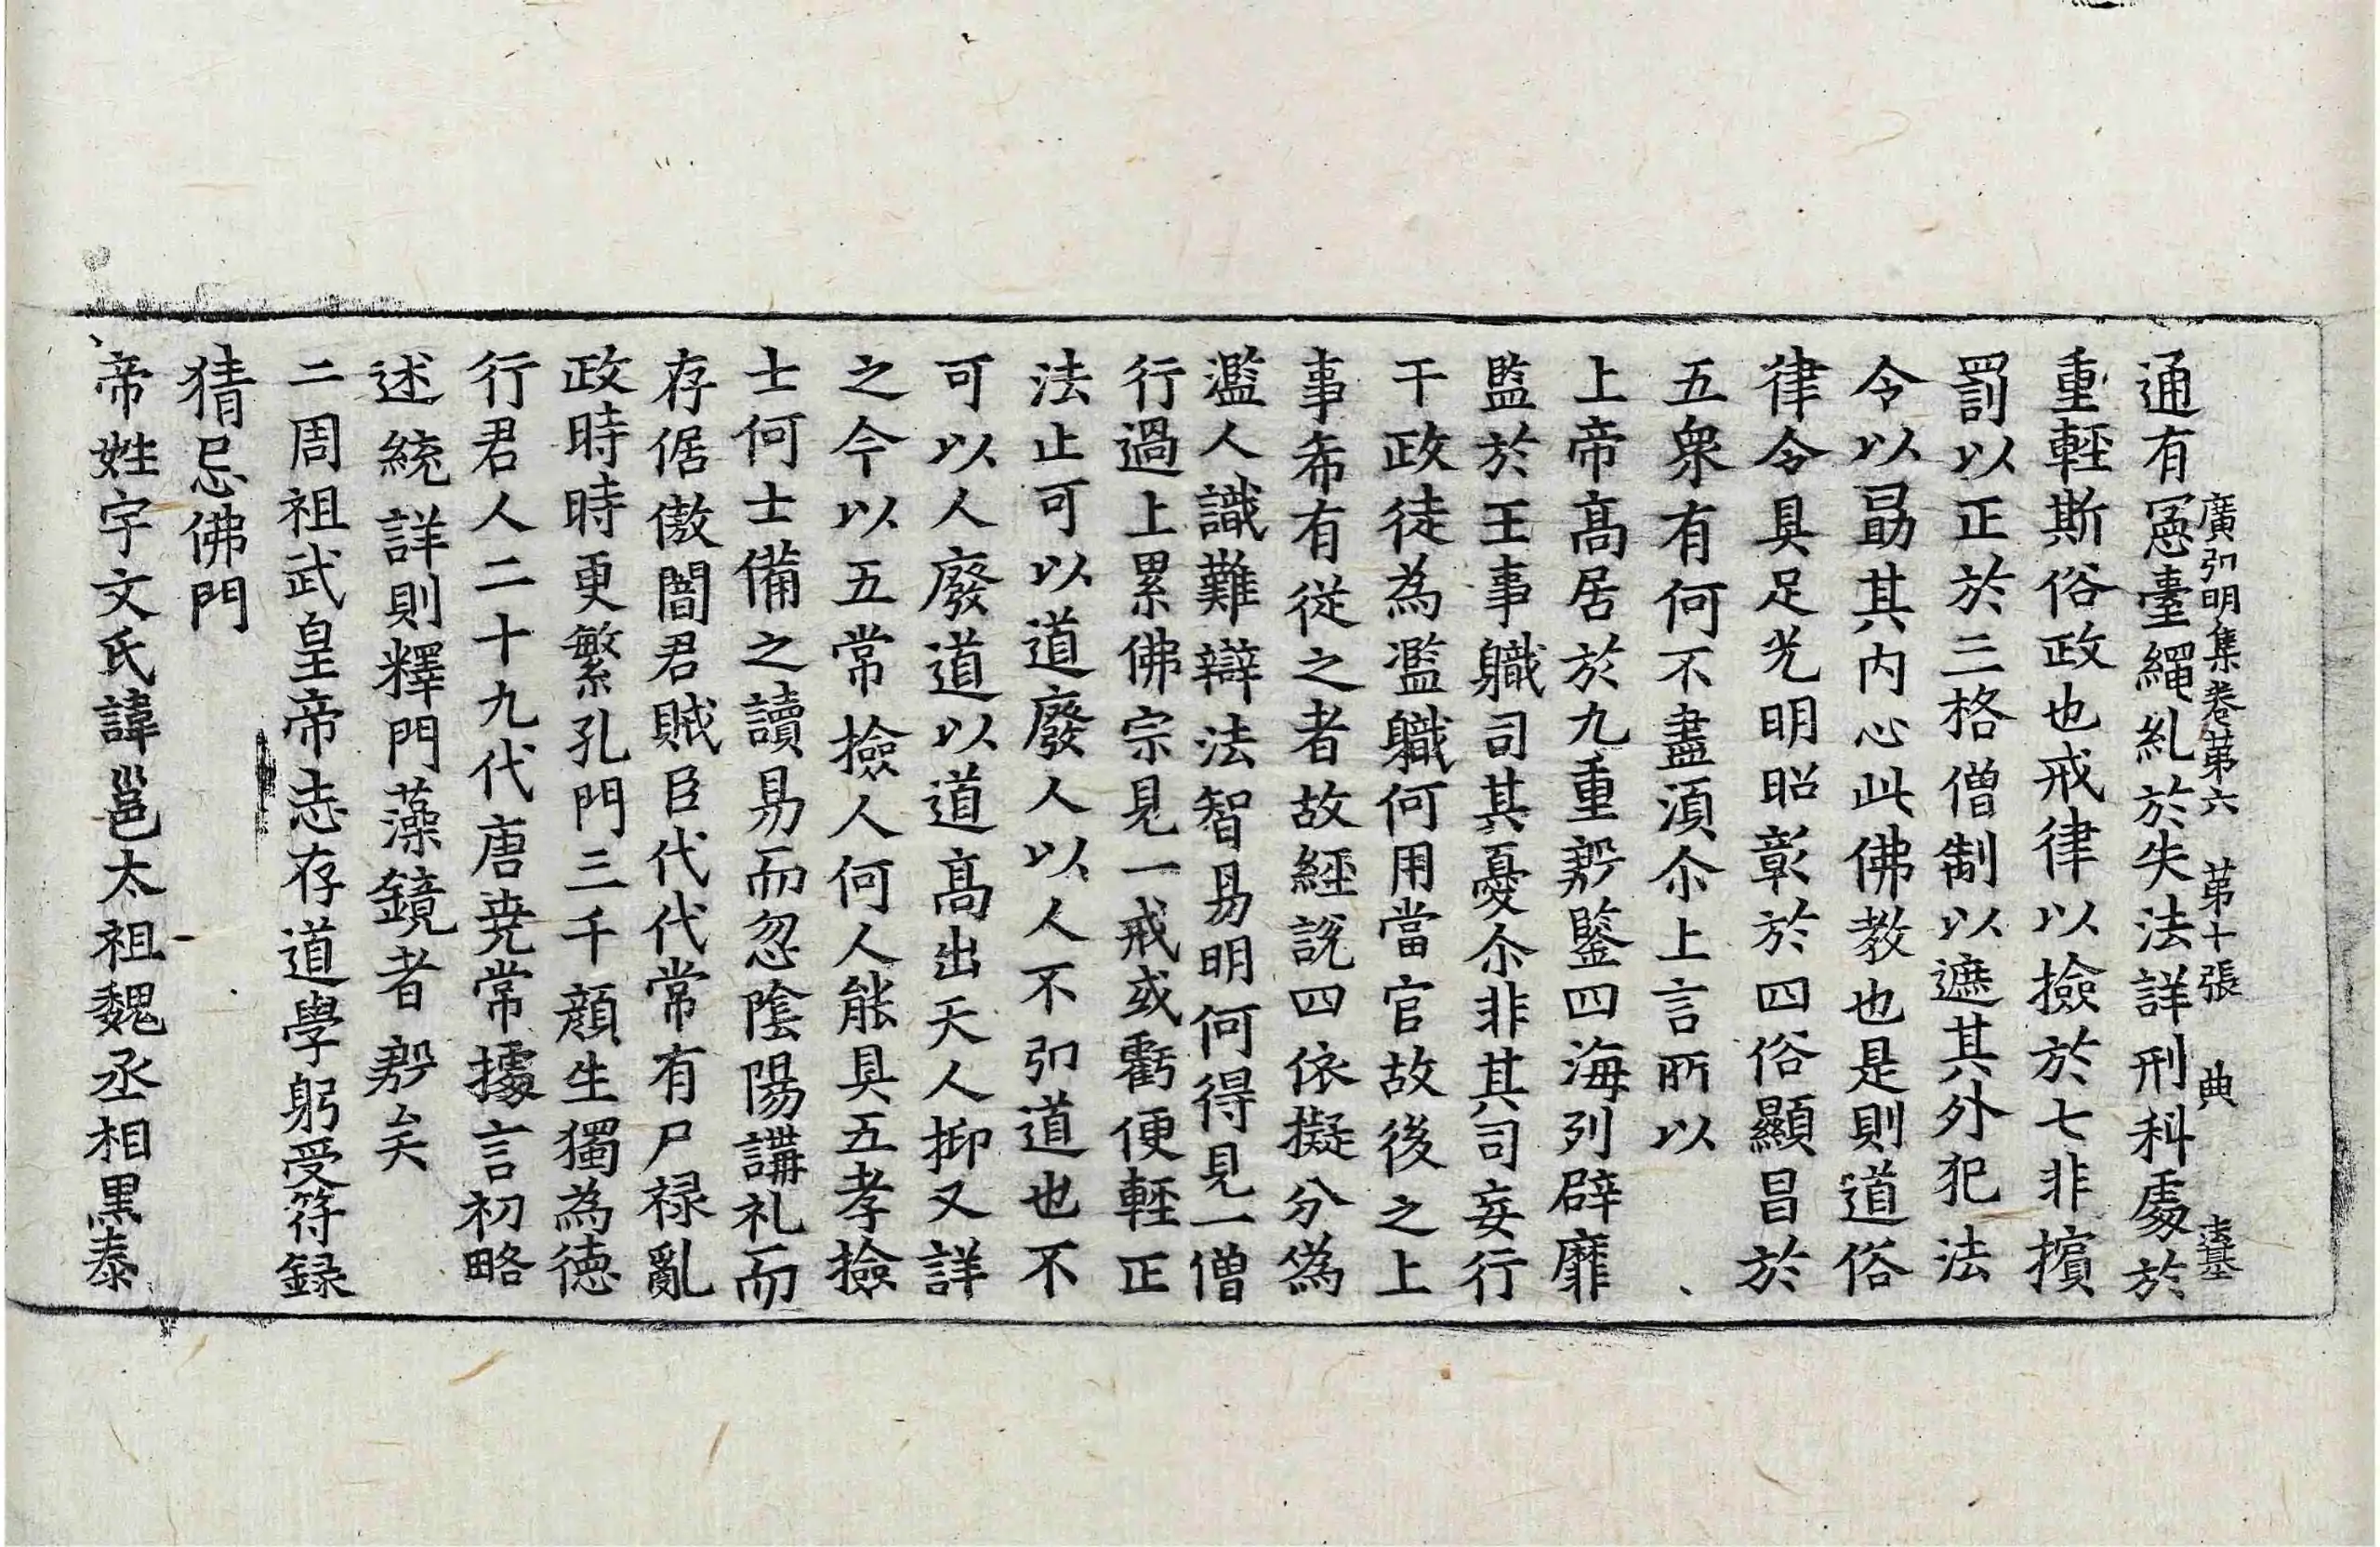 廣弘明集卷第六 第十張 典 法基
通有冤臺繩糺於失法詳刑科處於
重輕斯俗政也戒律以撿於七非擯
罰以正於三格僧制以遮其外犯法
令以勗其內心此佛教也是則道俗
律令具足光明昭彰於四俗顯昌於
五衆有何不盡湏尒上言所以
上帝高居於九重䂓鑒四海列辟靡
監於王事職司其憂尒非其司妄行
干政徒為濫職何用當官故後之上
事希有從之者故經說四依擬分偽
濫人識難辯法智易明何得見一僧
行過上累佛宗見一戒或虧便輕正
法止可以道廢人以人不弘道也不
可以人廢道以道高出天人抑又詳
之今以五常撿人何人能具五孝撿
士何士備之讀易而忽陰陽講礼而
存倨傲闇君賊臣代代常有尸祿亂
政時時更繁孔門三千顏生獨為德
行君人二十九代唐堯常據言初略
述統詳則釋門藻鏡者䂓矣
二周祖武皇帝志存道學躬受符録
猜忌佛門
帝姓宇文氏諱邕太祖魏丞相黑泰